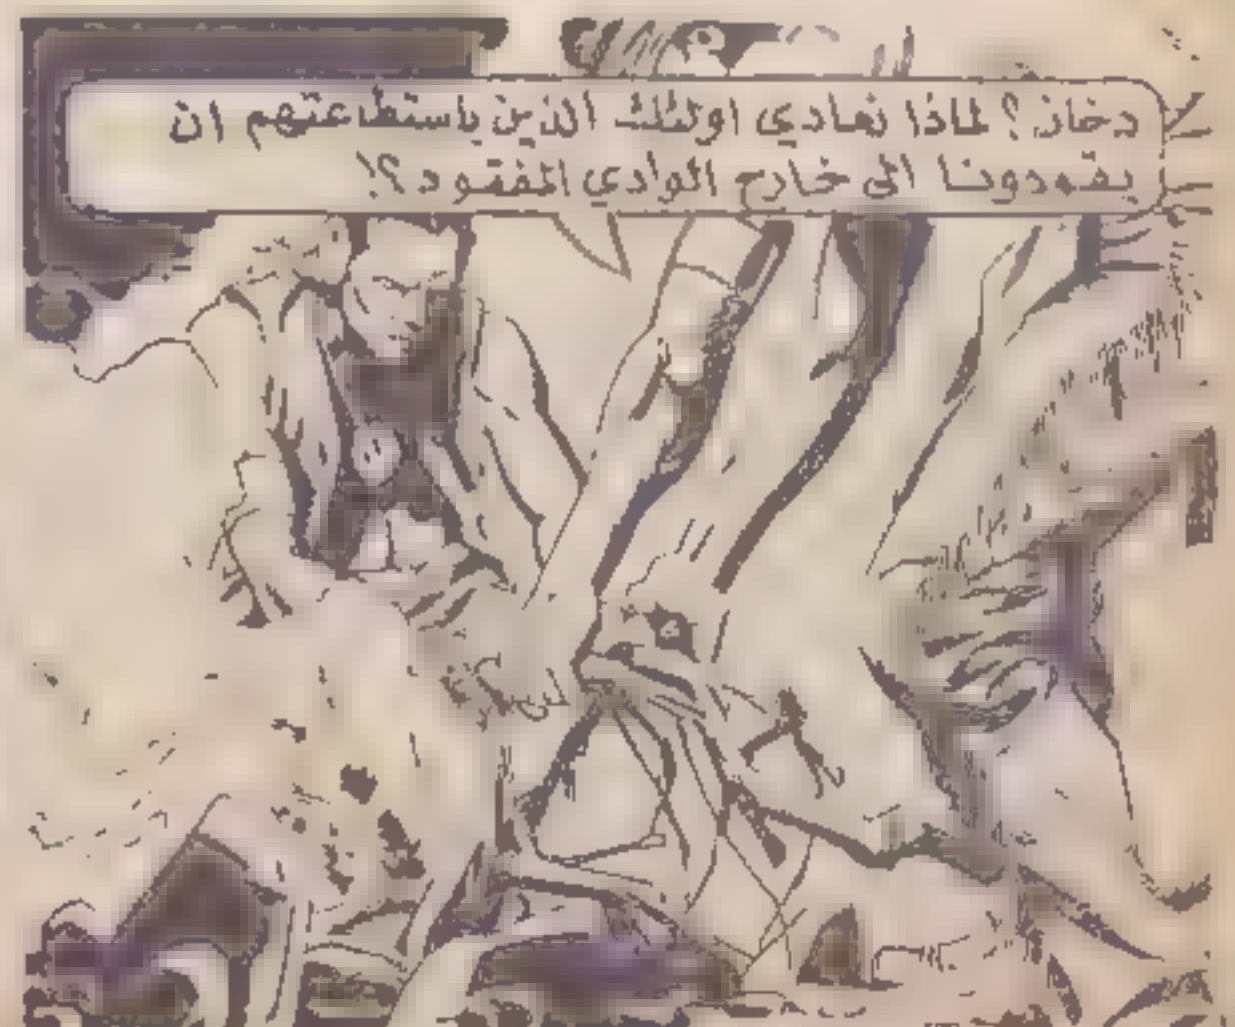 دخان؟ لماذا نعادي اولئك الذين باستطاعتهم ان
يقودونا الى خارج الوادي المفقود؟!